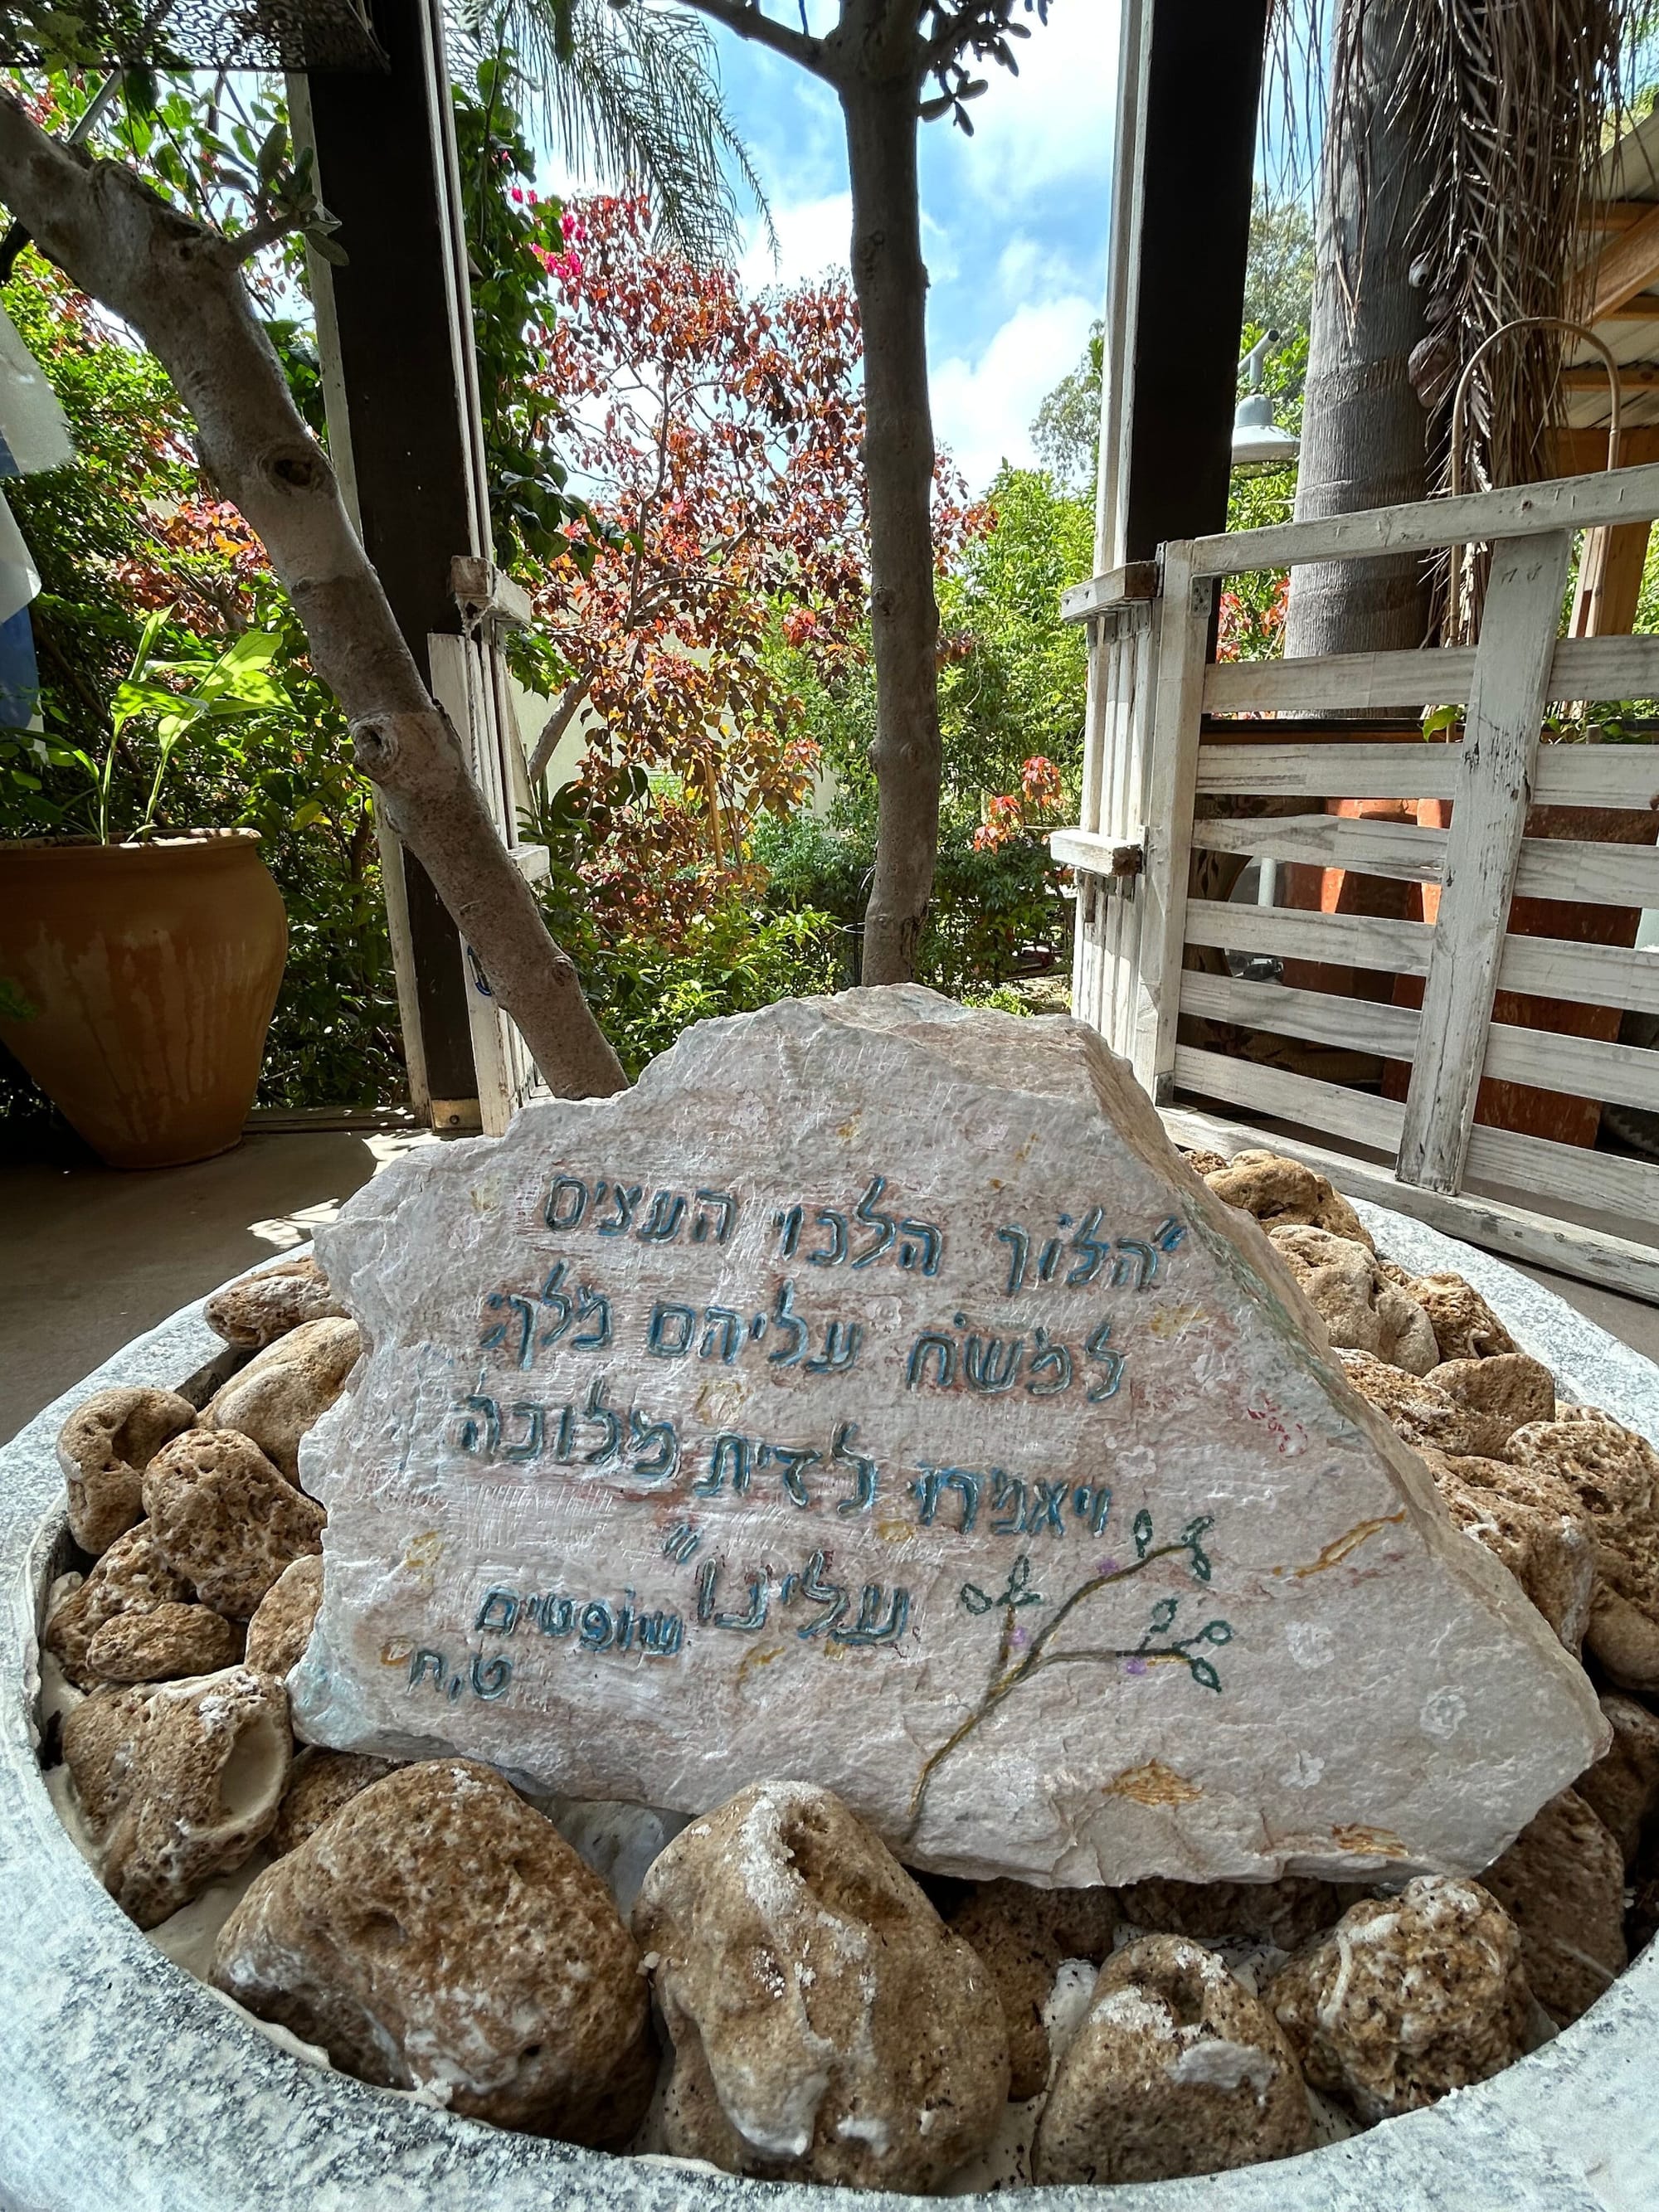 "הלוך הלכו העצים
למשח עליהם מלך;
ויאמרו לזית מלוכה
עלינו" שופטים
ט,ח